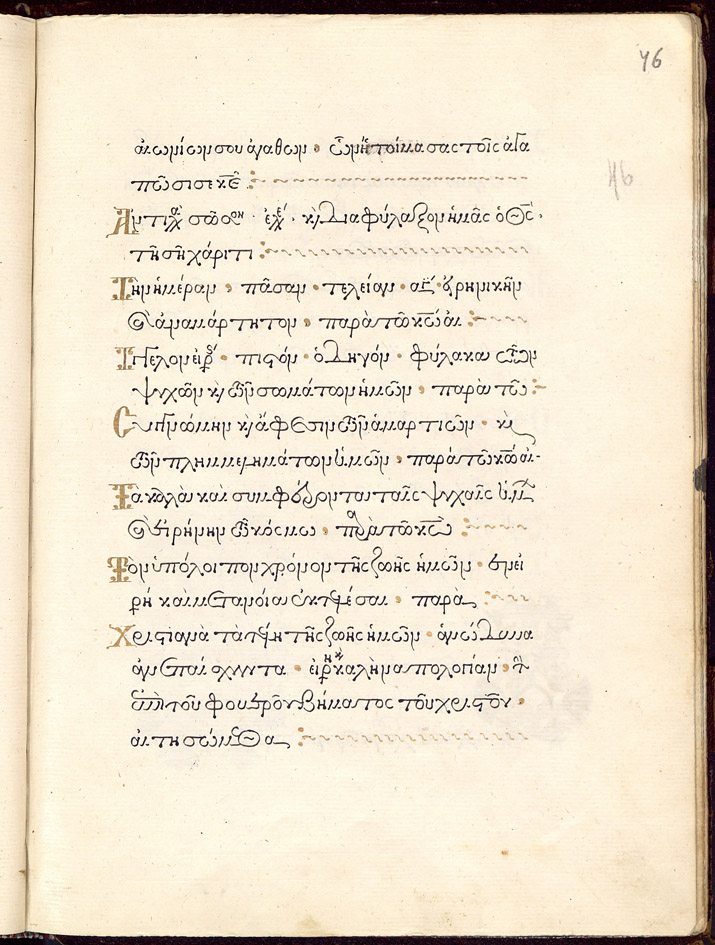 46
αἰωνίων σου ἀγαθῶν · ὧν ἡτοίμασας τοῖς ἀγα
πῶσί σε κε̅ :~
46
Ἀντιλ σῶσον · ἐλε · κ διαφύλαξον ἡμᾶς ὁ θς̅ ·
τῆ σῆ χάριτι :~
Τὴν ἡμέραν · πᾶσαν · τελείαν · αγ · εἰρηνικὴν
καὶ ἀναμάρτητον · παρὰ τοῦ κυ̅ αἰ :~
Ἄγγελον εἰρ · πιστόν · ὁδηγόν · φύλακα τῶν
ψυχῶν κ τῶν σωμάτων ἡμῶν · παρὰ τοῦ :~
Συγγνώμην κ ἄφεσιν τῶν ἁμαρτιῶν · κ
τῶν πλημμελημάτων ἡμῶν · παρὰ τοῦ κυ̅ αἰ·
Τὰ καλὰ καὶ συμφέροντα ταῖς ψυχαῖς ἡμ
καὶ εἰρήνην τῶ κόσμω · παρὰ τοῦ κυ̅ :~
Τὸν ὑπόλοιπον χρόνον τῆς ζωῆς ἡμῶν · ἐν εἰ
ρή καὶ μετανοία ἐκτελέσαι · παρὰ :~
Χριστιανὰ τὰ τέλη τῆς ζωῆς ἡμῶν · ἀνώδυνα
ἀνεπαίσχυντα · εἰρηνικά καλὴν ἀπολογίαν · τὴν
ἐπὶ τοῦ φοβεροῦ βήματος τοῦ χριστοῦ ·
αἰτησώμεθα :~